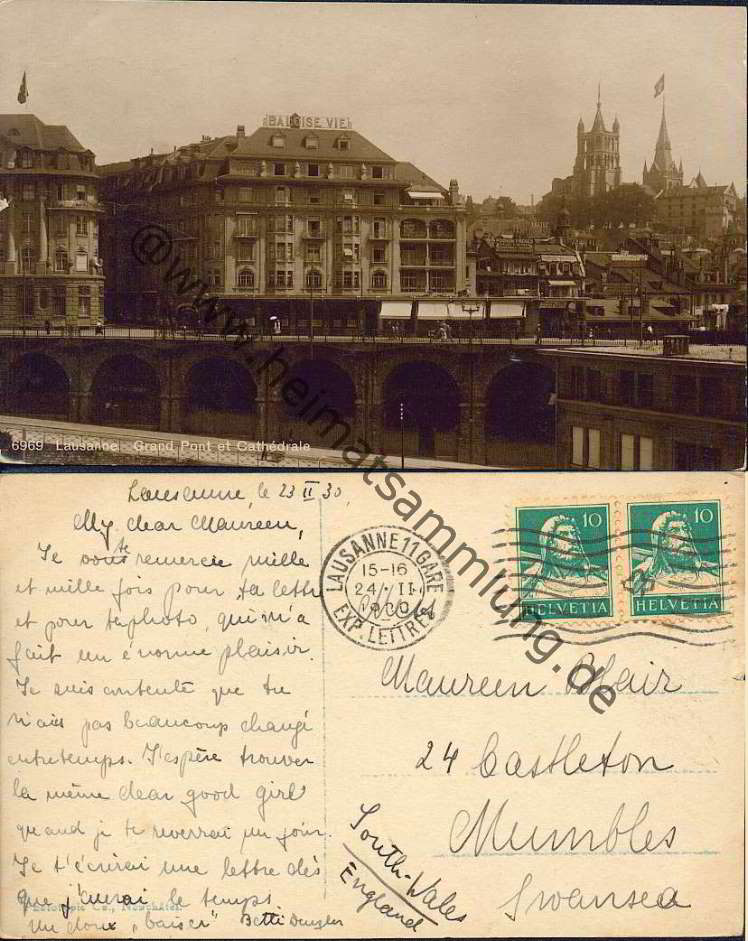 BALOISE VIE
6969 Lausanne. Grand Pont et Cathédrale
@www.heimatsammlung.de
Lausanne, le 23 II 30,
My dear Maureen,
Je te remercie mille
et mille fois pour ta lettre
et pour ta photo, qui m'a
fait un énorme plaisir.
Je suis contente que tu
n'aies pas beaucoup changé
entretemps. J'espère trouver
la même dear good girl
quand je te reverrai un jour.
Je t'écrirai une lettre dès
que j'aurai le temps
Phototypie Co., Neuchâtel
Un doux "baiser" Betti
LAUSANNE 11 GARE
15-16
24. II
1930
EXP. LETTRES
10 10
HELVETIA HELVETIA
Maureen Blair
24 Castleton
Mumbles
Swansea
South-Wales
England